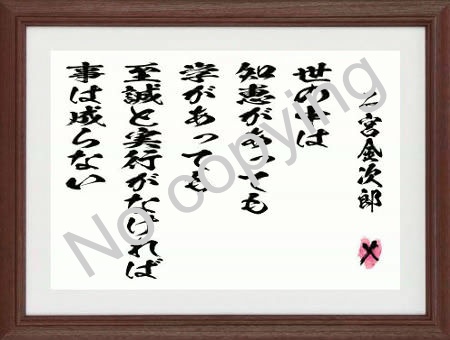 二宮金次郎
世の中は
知恵があっても
学があっても
至誠と実行がなければ
事は成らない
No copying